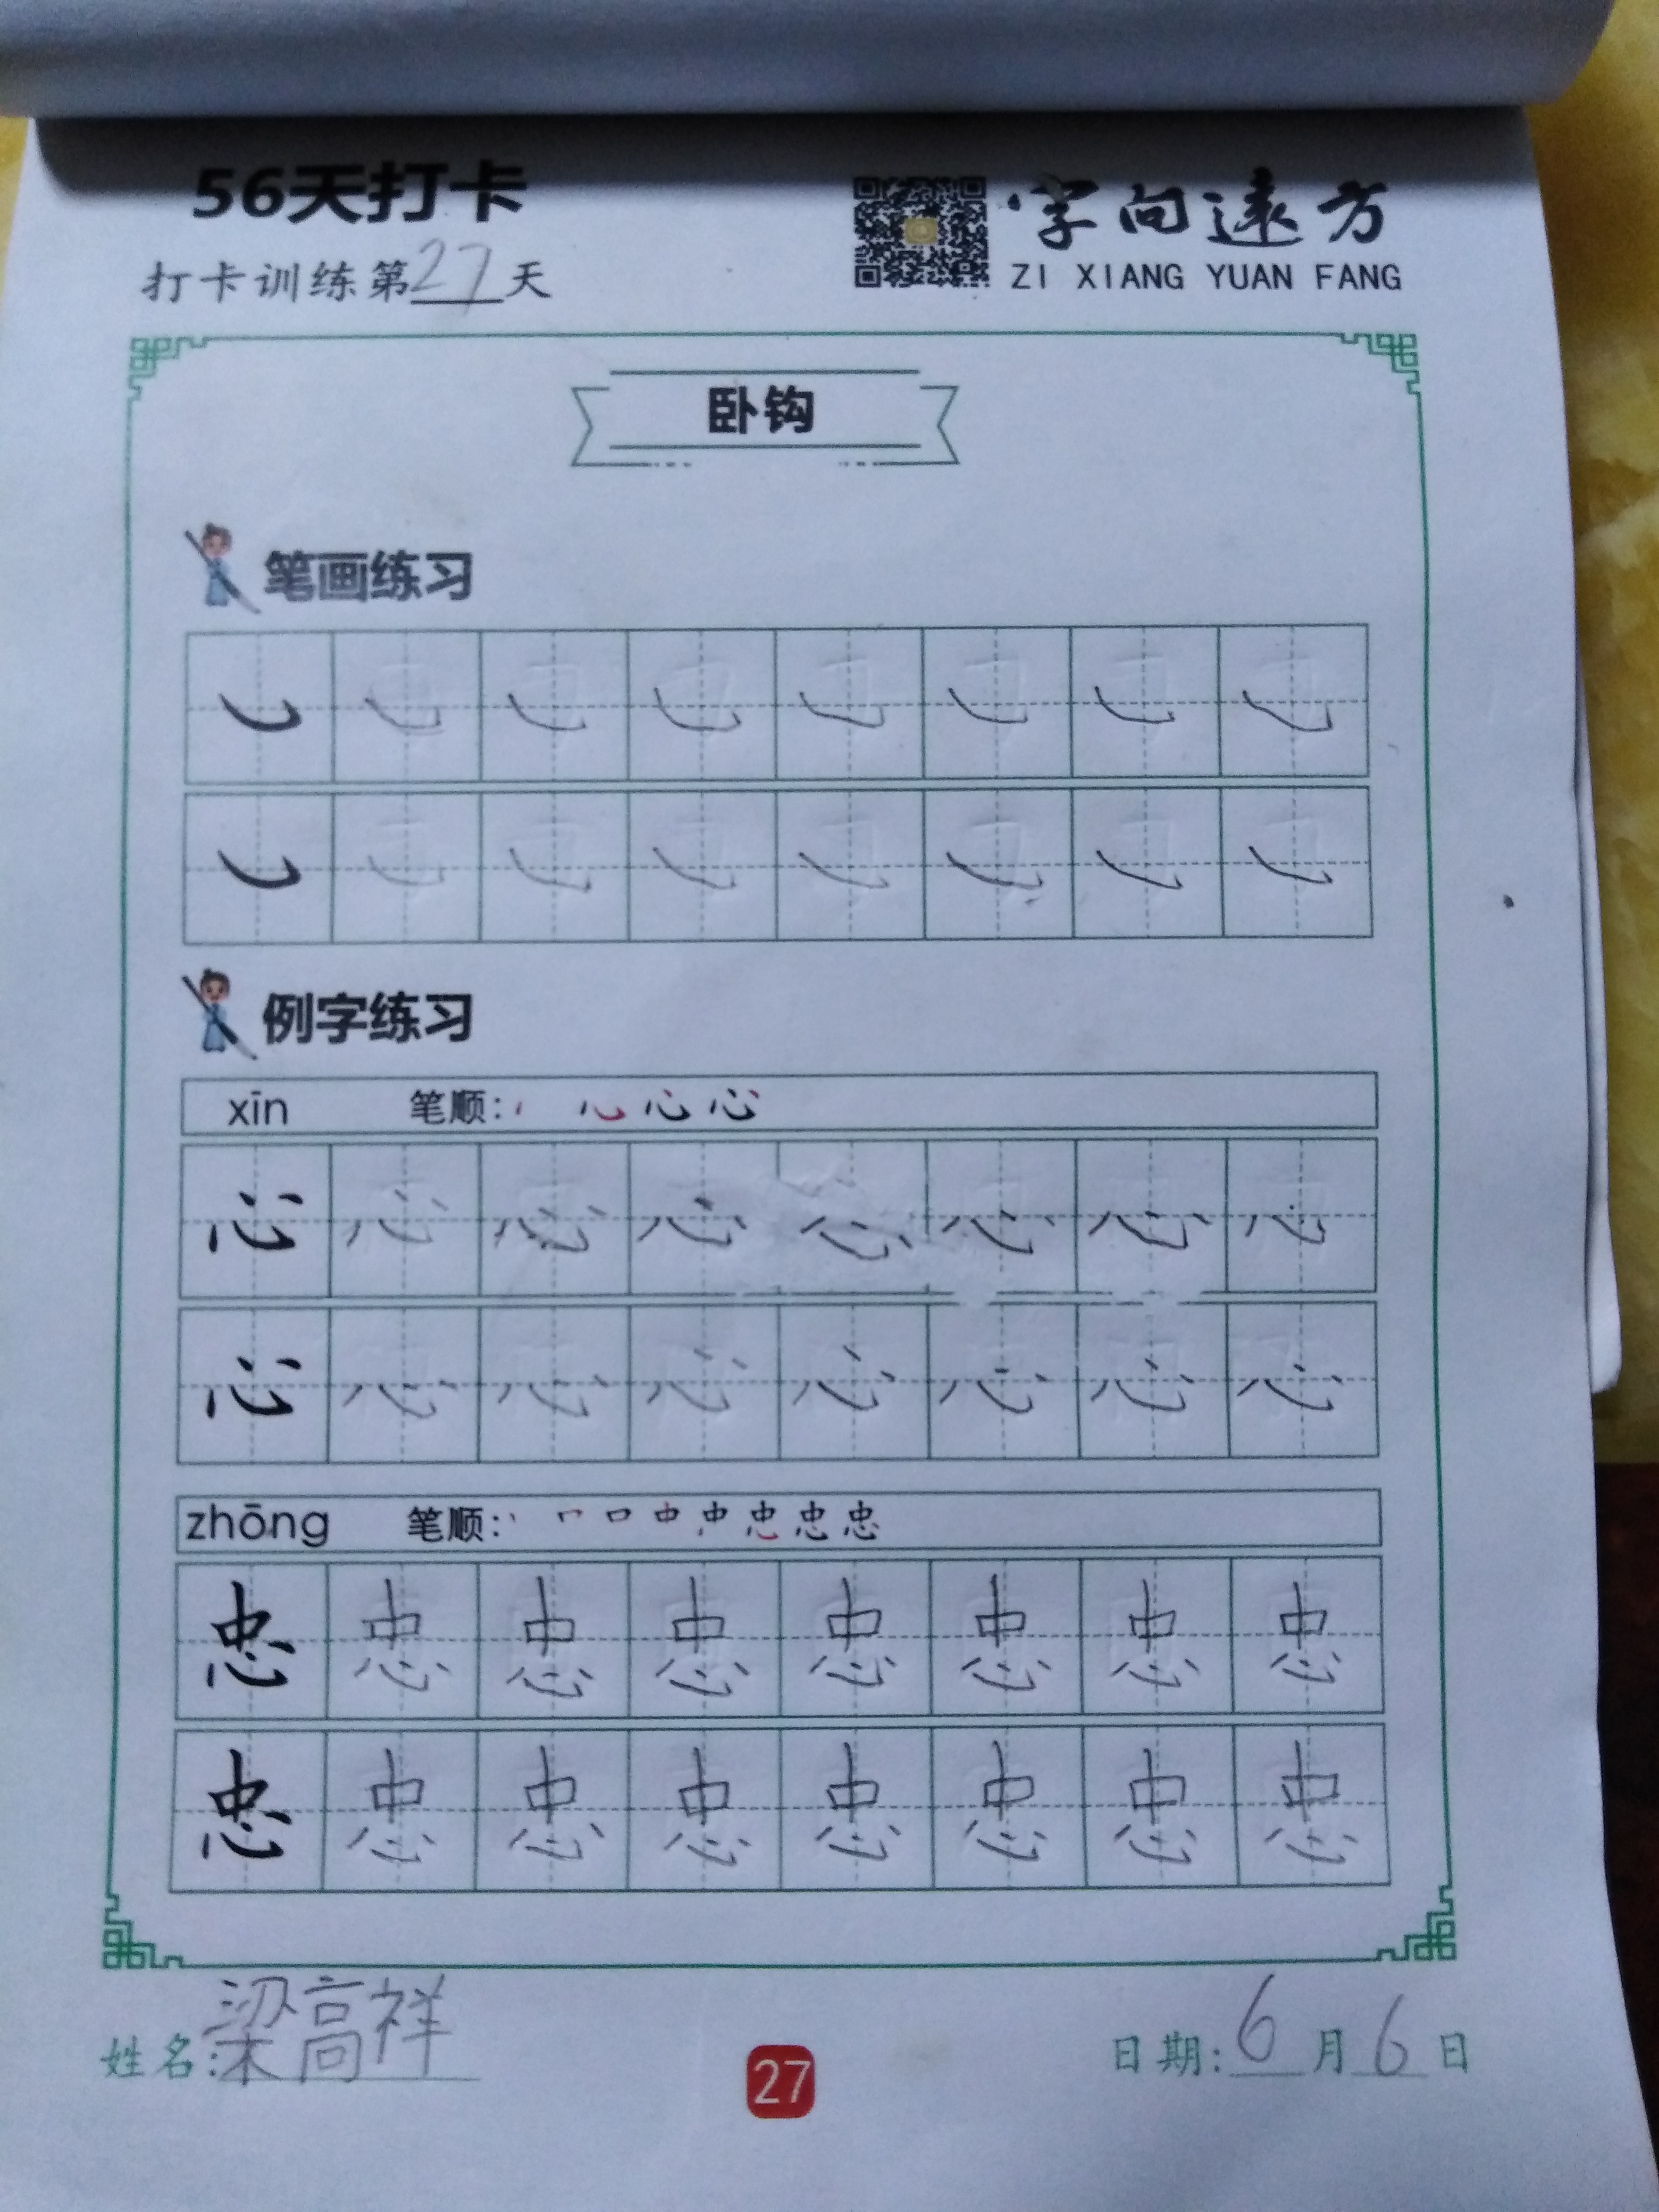 56天打卡
字向远方
ZI XIANG YUAN FANG
打卡训练第27天
卧钩
笔画练习
例字练习
xīn 笔顺:
心 心 心 心 心 心 心 心
心 心 心 心 心 心 心 心
zhōng 笔顺:
忠 忠 忠 忠 忠 忠 忠 忠
忠 忠 忠 忠 忠 忠 忠 忠
姓名:梁高祥
27
日期:6月6日